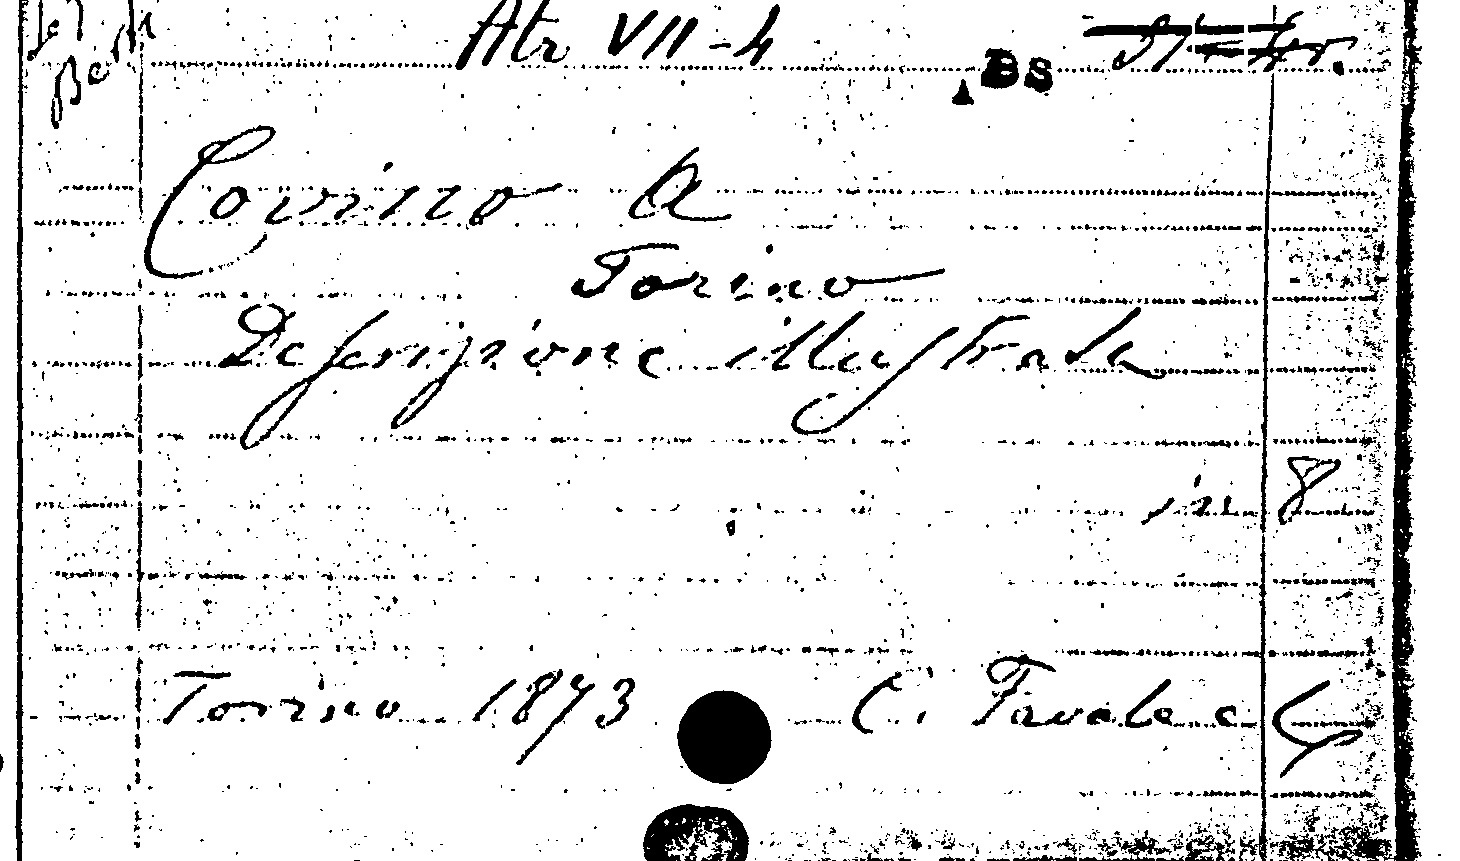 Atr VII-4
BS
Covino A
Torino
Descrizione illustrata
in 8
Torino 1873 C. Favale e C